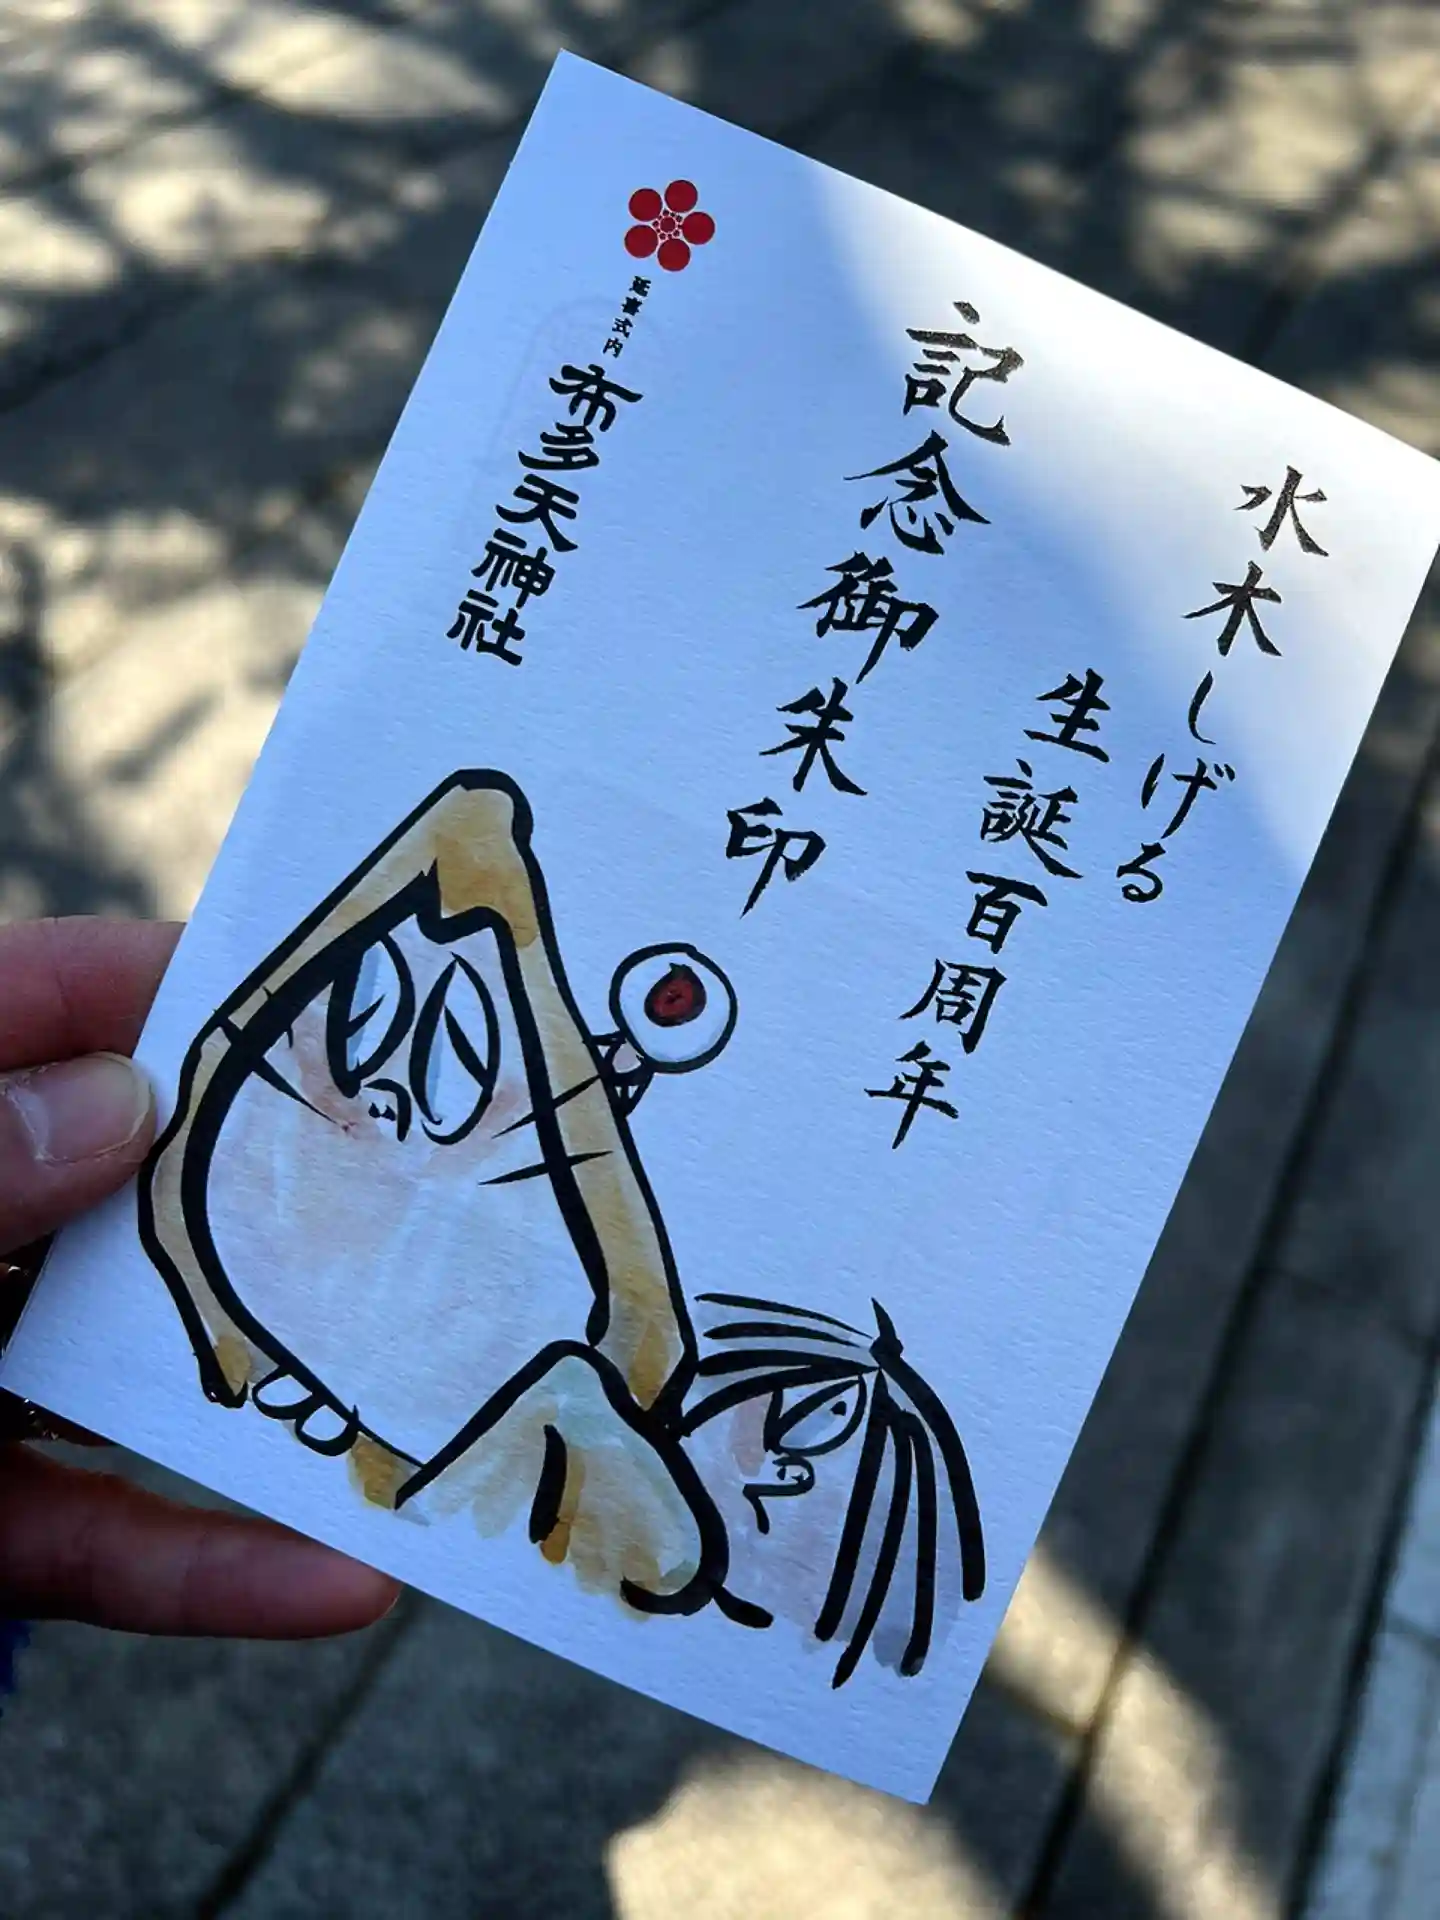 水木しげる
生誕百周年
記念御朱印
延喜式内
布多天神社